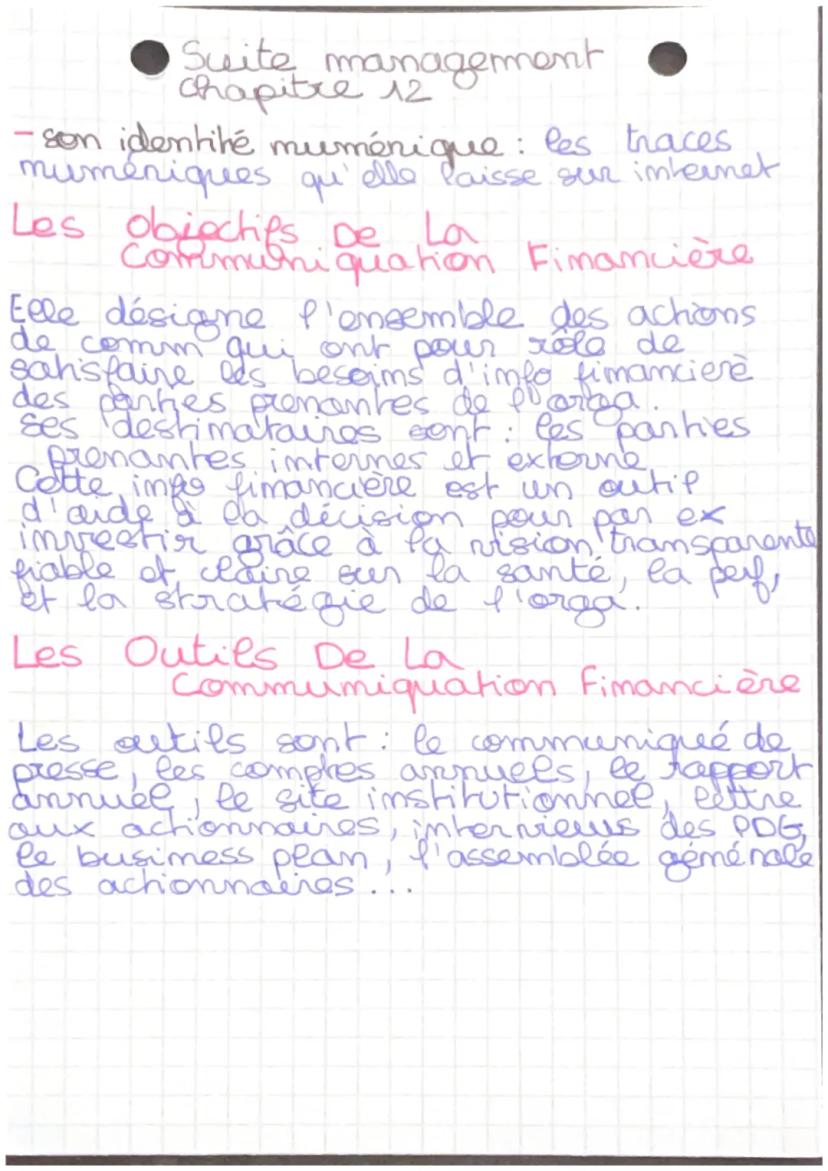 Suite management
chapitre 12
- son identité numérique : les traces
numériques qu'elle laisse sur internet
Les Objectifs De La
Communiquation Financière
Elle désigne l'ensemble des actions
de comm qui ont pour rôle de
satisfaire les besoins d'info financiere
des parties prenantes de l'orga.
Ses destinataires sont : les parties
prenantes internes et externe
Cette info financière est un outil
d'aide à la décision pour par ex
investir grâce à la vision transparente
fiable et claire sur la santé, la perf,
et la stratégie de l'orga.
Les Outils De La
Communiquation Financière
Les outils sont : le communiqué de
presse, les comptes annuels, le rapport
annuel, le site institutionnel, lettre
aux actionnaires, interviews des PDG,
le business plan, l'assemblée générale
des actionnaires...